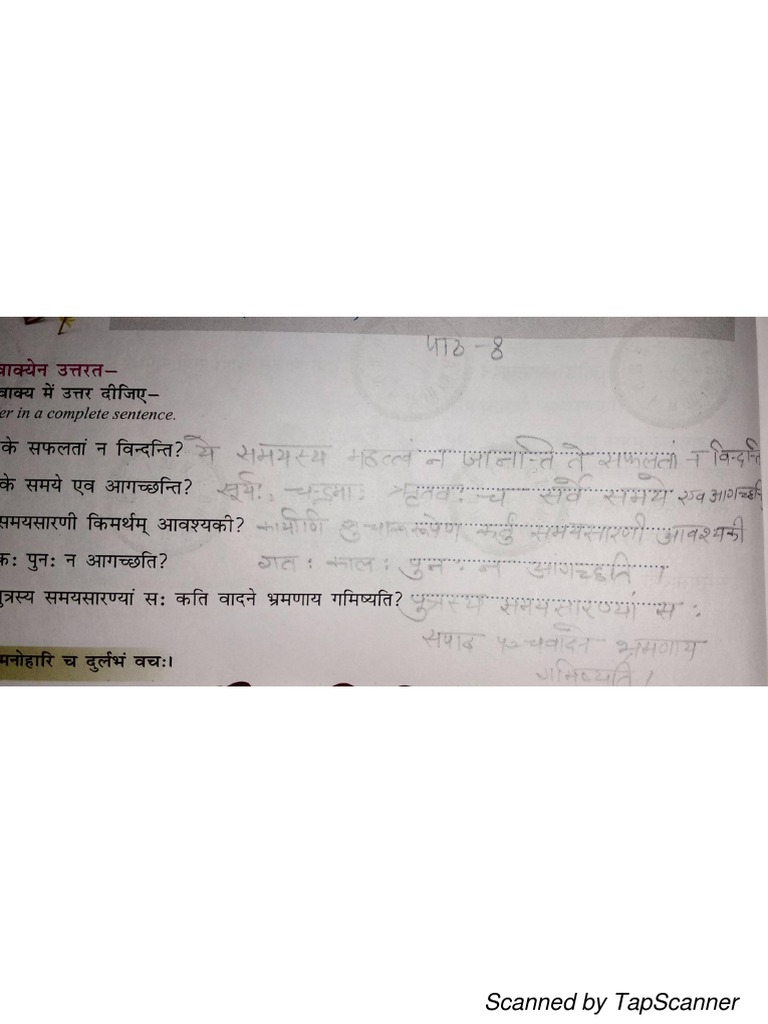 पाठ - 8
वाक्येन उत्तरत–
वाक्य में उत्तर दीजिए–
er in a complete sentence.
के सफलतां न विन्दन्ति? ये समयस्य महत्त्वं न जानन्ति ते सफलतां न विन्दन्ति
के समये एव आगच्छन्ति? सूर्यः, चन्द्रमाः ऋतवः च सर्वे समये एव आगच्छन्ति
समयसारणी किमर्थम् आवश्यकी? कार्याणि सुचारूरूपेण कर्तुं समयसारणी आवश्यकी
कः पुनः न आगच्छति? गतः कालः पुनः न आगच्छति ।
पुत्रस्य समयसारण्यां सः कति वादने भ्रमणाय गमिष्यति? पुत्रस्य समयसारण्यां सः
सपाद पञ्चवादने भ्रमणाय
गमिष्यति ।
मनोहारि च दुर्लभं वचः।
Scanned by TapScanner